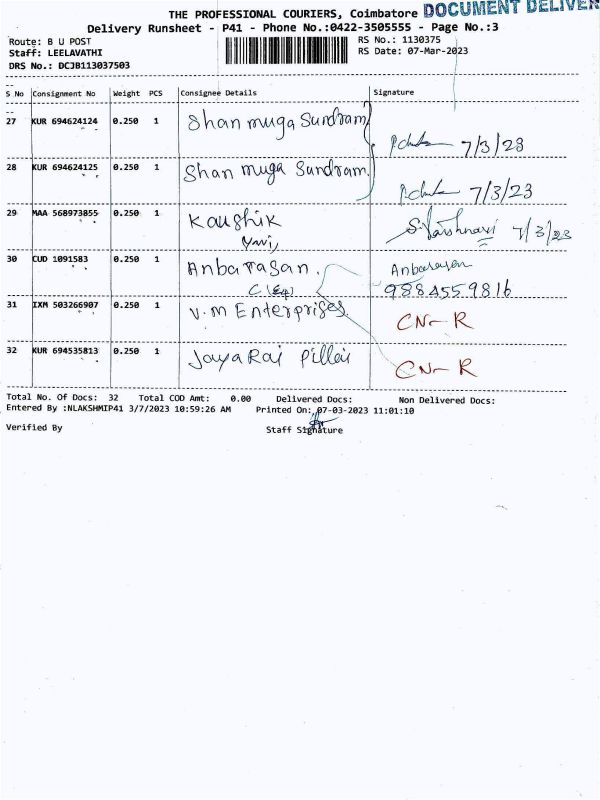 THE PROFESSIONAL COURIERS, Coimbatore DOCUMENT DELIVER
Delivery Runsheet - P41 - Phone No.:0422-3505555 - Page No.:3
Route: B U POST RS No.: 1130375
Staff: LEELAVATHI RS Date: 07-Mar-2023
DRS No.: DCJB113037503
S No Consignment No Weight PCS Consignee Details Signature
27 KUR 694624124 0.250 1 Shanmuga Sundram 7/3/23
28 KUR 694624125 0.250 1 Shanmuga Sundram 7/3/23
29 MAA 568973855 0.250 1 Kaushik 7/3/23
30 CUD 1091583 0.250 1 Anbarasan. Anbarasan
9884559816
31 IXM 503266907 0.250 1 V.M Enterprises. CN- R
32 KUR 694535813 0.250 1 Jaya Raj Pillai CN- R
Total No. Of Docs: 32 Total COD Amt: 0.00 Delivered Docs: Non Delivered Docs:
Entered By :NLAKSHMIP41 3/7/2023 10:59:26 AM Printed On: 07-03-2023 11:01:10
Verified By Staff Signature